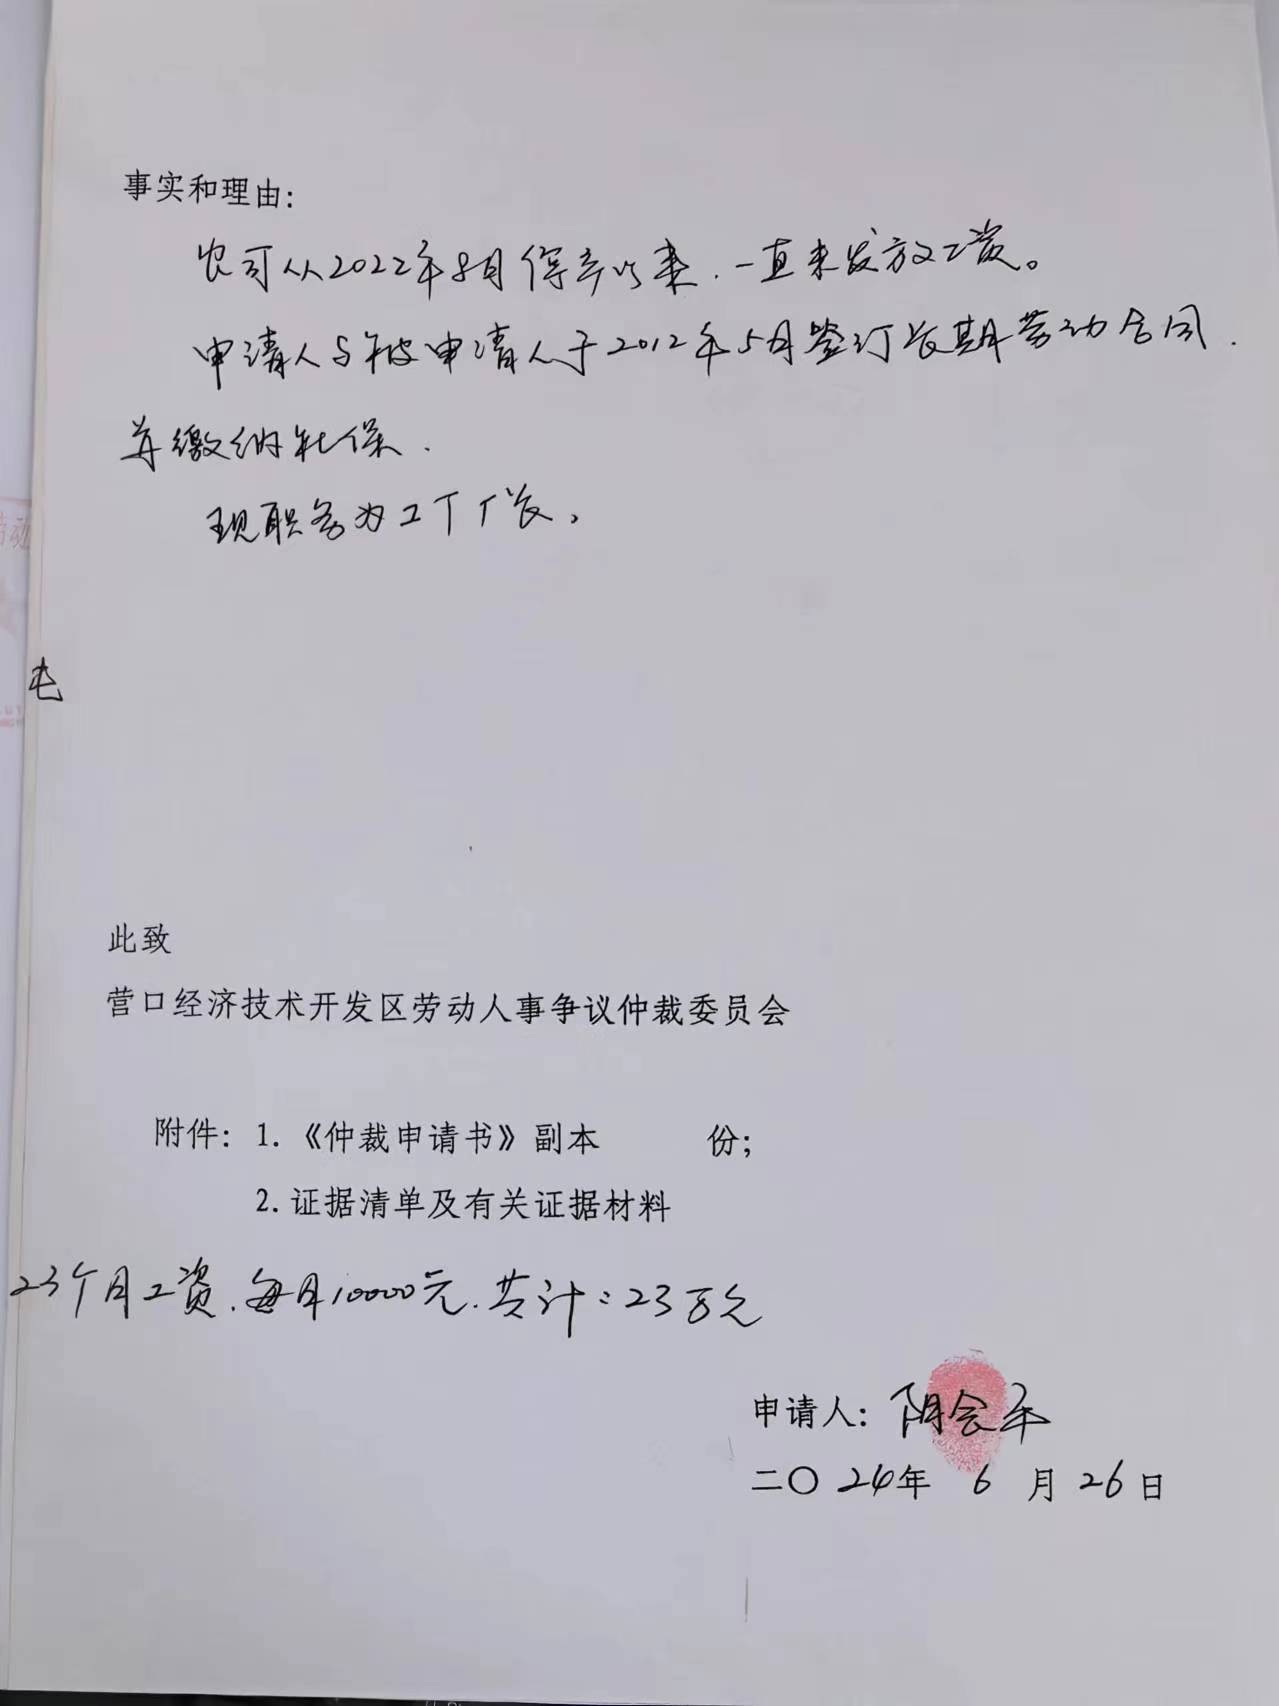 事实和理由:
公司从2022年8月停产以来,一直未发放工资。
申请人与被申请人于2012年5月签订长期劳动合同.
并缴纳社保.
现职务为工厂厂长,
此致
营口经济技术开发区劳动人事争议仲裁委员会
附件: 1.《仲裁申请书》副本 份;
2.证据清单及有关证据材料
23个月工资.每月10000元.共计:23万元
申请人: 阴会平
二〇24年 6 月 26 日